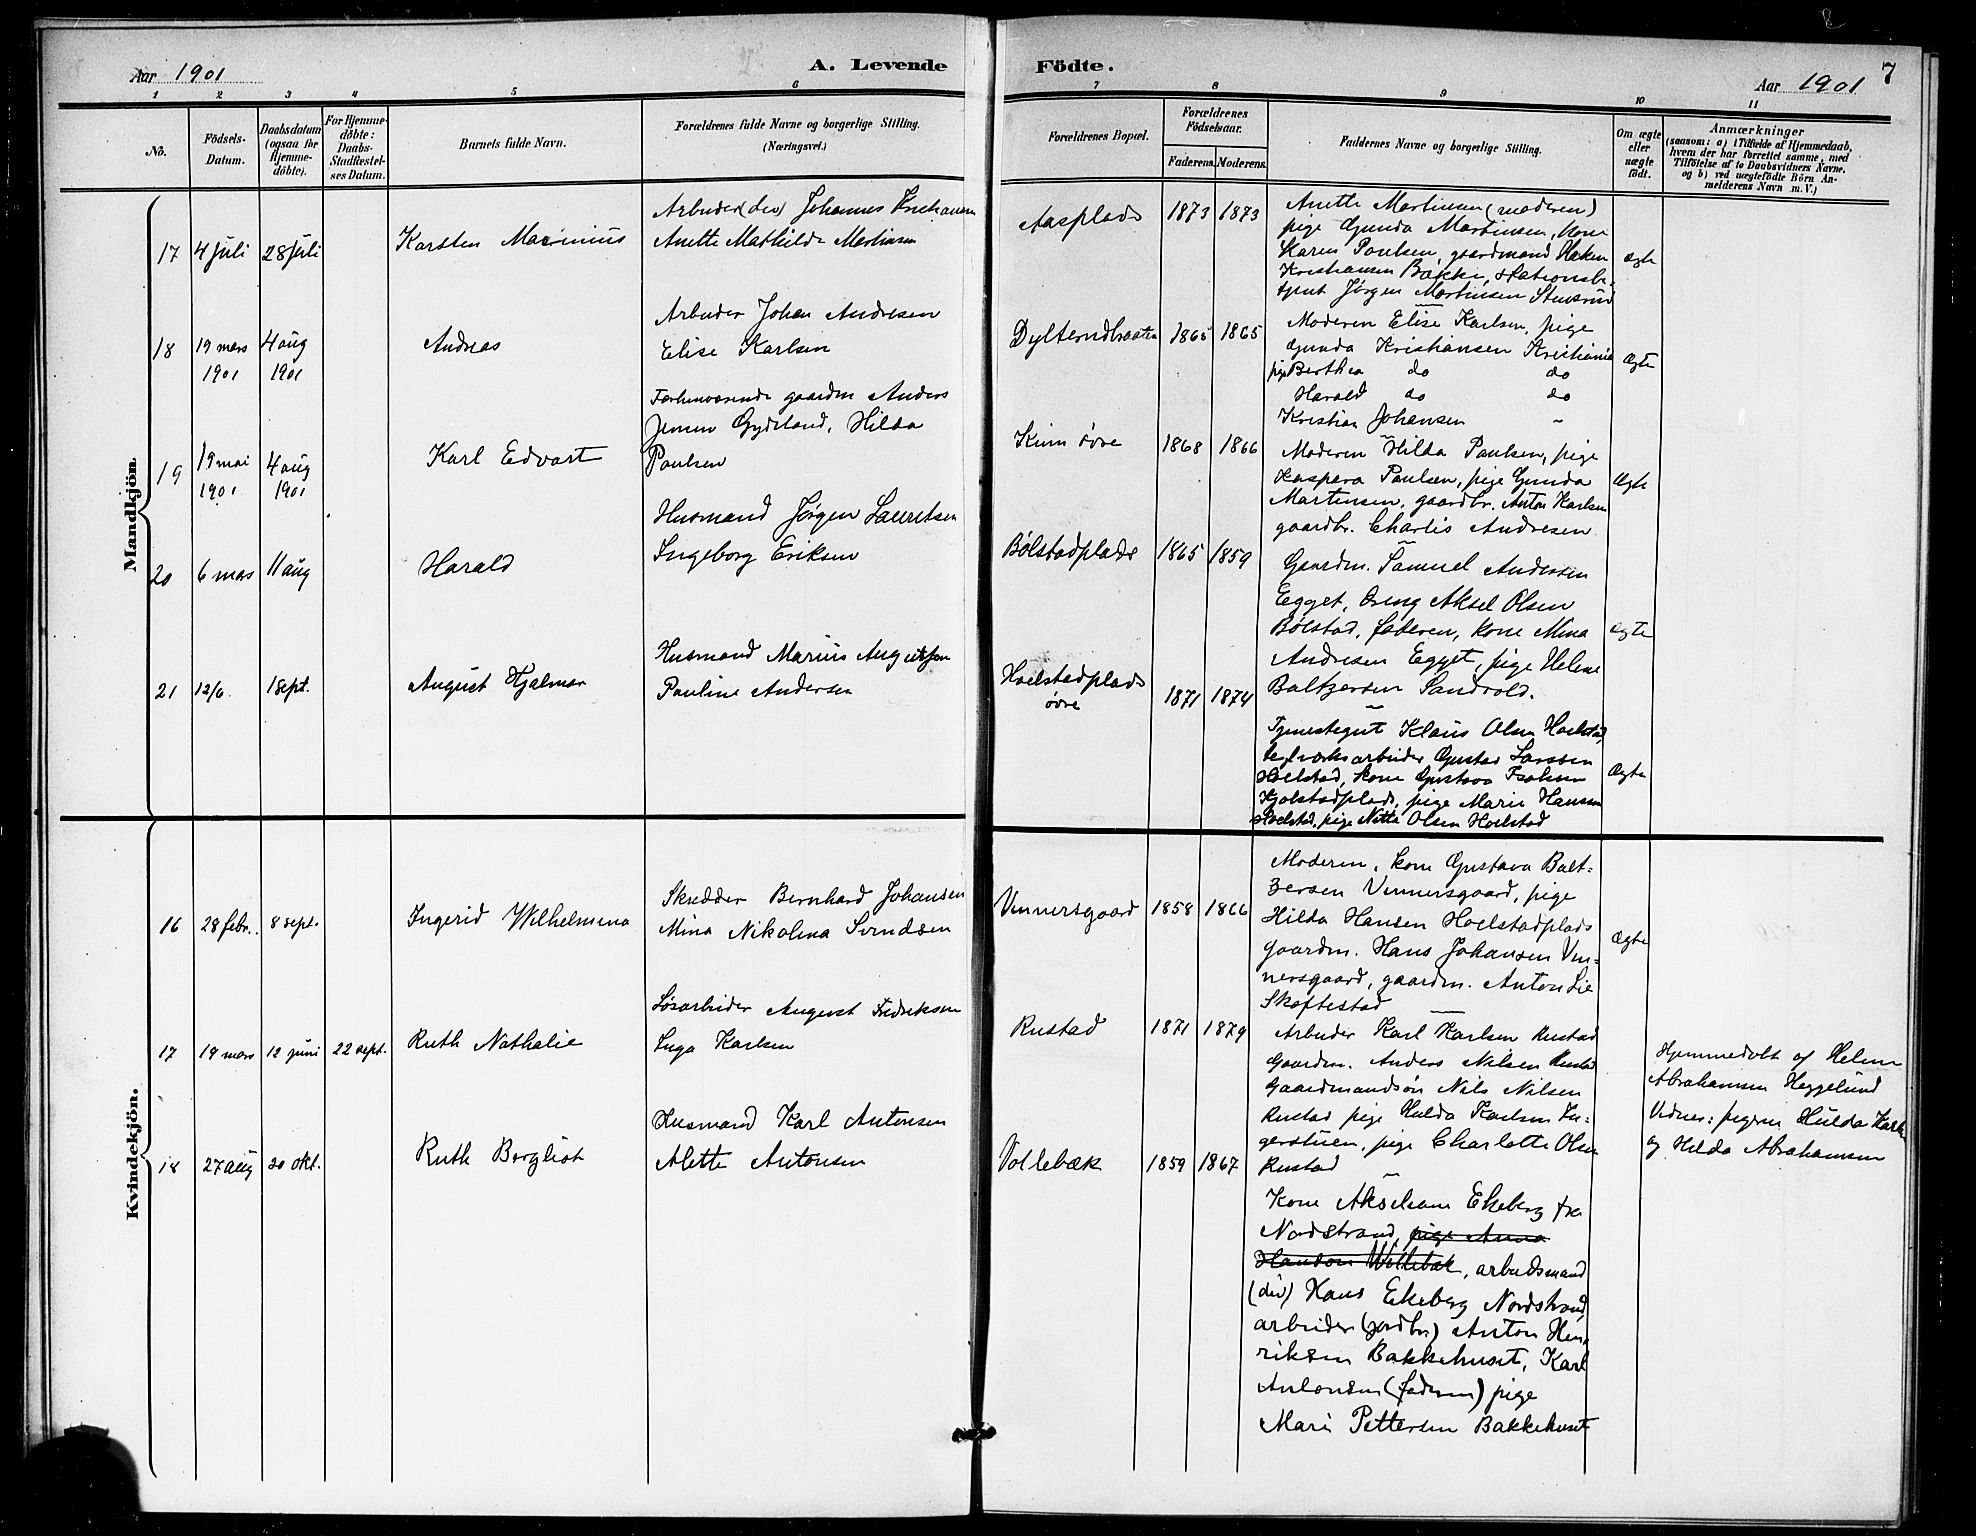 8
Aar 1901
A. Levende
Födte.
Aar 1901
7
1 2 3 4 5 6 7 8 9 10 11
No.
Födsels-
Datum.
Daabsdatum
(ogsaa for
Hjemme-
döbte).
For Hjemme-
döbte:
Daabs-
Stadfæstel-
ses Datum.
Barnets fulde Navn.
Forældrenes fulde Navne og borgerlige Stilling.
(Næringsvei.)
Forældrenes Bopæl.
Forældrenes
Födselsaar.
Faderens. Moderens.
Faddernes Navne og borgerlige Stilling.
Om ægte
eller
uægte
födt.
Anmærkninger
(saasom: a) i Tilfælde af Hjemmedaab,
hvem der har forrettet samme, med
Tilföielse af to Daabsvidners Navne.
og b) ved uægtefödte Börn An-
melderens Navn m. V.)
Mandkjön.
17 4 juli 28 juli
Karsten Marinius
Arbeider (div) Johannes Kristiansen
Anette Mathilde Martinsen
Aasplads 1873 1873
Anette Martinsen (moderen)
pige Gunda Martinsen, kone
Karen Paulsen, gaardmand Haken
Kristiansen Bakke, stationsbe-
tjent Jørgen Martinsen Stensrud
ægte
18 19 mars 4 aug
1901 1901
Andreas
Arbeider Johan Andresen
Elise Karlsen
1865 1865
Moderen Elise Karlsen, pige
Gunda Kristiansen Kristiania
pige Berthea do do
Harald do do
Kristian Johansen "
Ægte
19 19 mai 4 aug
1901 1901
Karl Edvart
Forhenværende gaardm Anders
Jensen Gydeland, Hilda
Paulsen
Kinn øvre 1868 1866
Moderen Hilda Paulsen, pige
Kaspara Paulsen, pige Gunda
Martinsen, gaardbr. Anton Karlsen
gaardbr. Charlis Andresen
Ægte
20 6 mars 11 aug
Harald
Husmand Jørgen Lauritsen
Ingeborg Eriksen
Bølstadplads 1865 1859
Gaardm. Samuel Andersen
Egget, dreng Aksel Olsen
Bølstad, faderen, kone Mina
Andresen Egget, pige Helene
Baltzersen Sandvold.
Ægte
21 12/6. 1 sept.
August Hjalmar
Husmand Marius Augustsen
Pauline Andersen
Hoelstadplads
øvre 1871 1874
Tjenestegut Klaus Olsen Hoelstad,
arbeider Gustav Larssen
Hoelstad, kone Gustava Isaksen
Hjolstadplads, pige Marie Hansen
Hoelstad, pige Nitta Olsen Hoelstad
Ægte
Kvindekjön.
16 28 febr. 8 sept.
Ingerid Wilhelmina
Skredder Bernhard Johansen
Mina Nikolina Svendsen
Vinnersgaard 1858 1866
Moderen, kone Gustava Balt-
zersen Vinnersgaard, pige
Hilda Hansen Hoelstadplads
Gaardm. Hans Johansen Vin-
nersgaard, gaardm. Anton Lie
Skoftestad
Ægte
17 19 mars 12 juni 22 sept.
Ruth Nathalie
Løsarbeider August Fredriksen
Inga Karlsen
Rustad 1871 1879
Arbeider Karl Karlsen Rustad
Gaardm. Anders Nilsen Rustad
Gaardmandsøn Nils Nilsen
Rustad pige Hulda Karlsen In-
gerstuen, pige Charlotte Olsen
Rustad
Hjemmedøbt af Helene
Abrahamsen Heggelund
Vidner: pigerne Hulda Karls
og Hilda Abrahamsen
18 27 aug 20 okt.
Ruth Bergliot
Husmand Karl Antonsen
Alette Antonsen
Vollebæk 1859 1867
Kone Akselsen Ekeberg fra
Nordstrand, pige Anna
Hanson Wollebæk, arbeidsmand
(div) Hans Ekeberg Nordstrand,
arbeider (jordbr) Anton Hen-
riksen Bakkehuset, Karl
Antonsen (faderen) pige
Mari Pettersen Bakkehuset